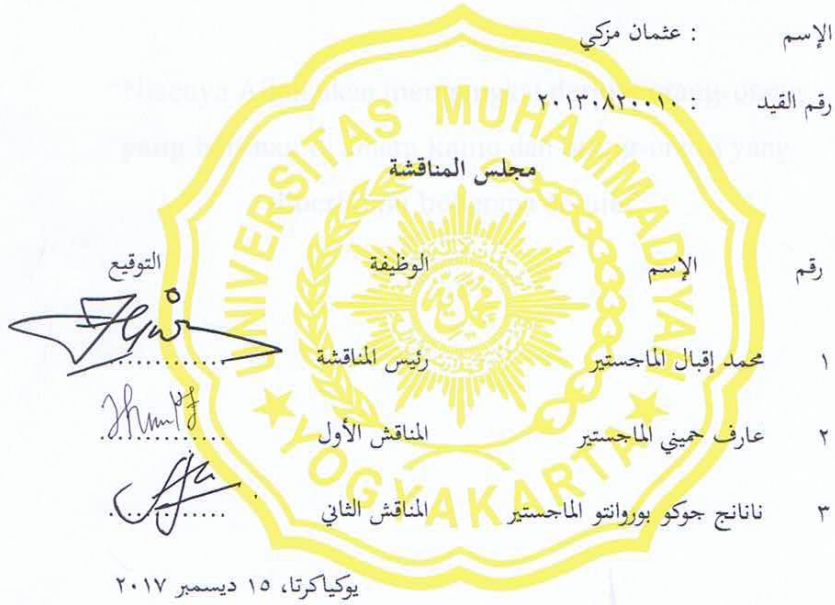 الإسم : عثمان مزكي
رقم القيد : ٢٠١٣٠٨٢٠٠١٠
مجلس المناقشة
رقم الإسم الوظيفة التوقيع
١ محمد إقبال الماجستير رئيس المناقشة ..............
٢ عارف حميني الماجستير المناقش الأول ..............
٣ نانانج جوكو بوروانتو الماجستير المناقش الثاني ..............
يوكياكرتا، ١٥ ديسمبر ٢٠١٧
UNIVERSITAS MUHAMMADIYAH
YOGYAKARTA